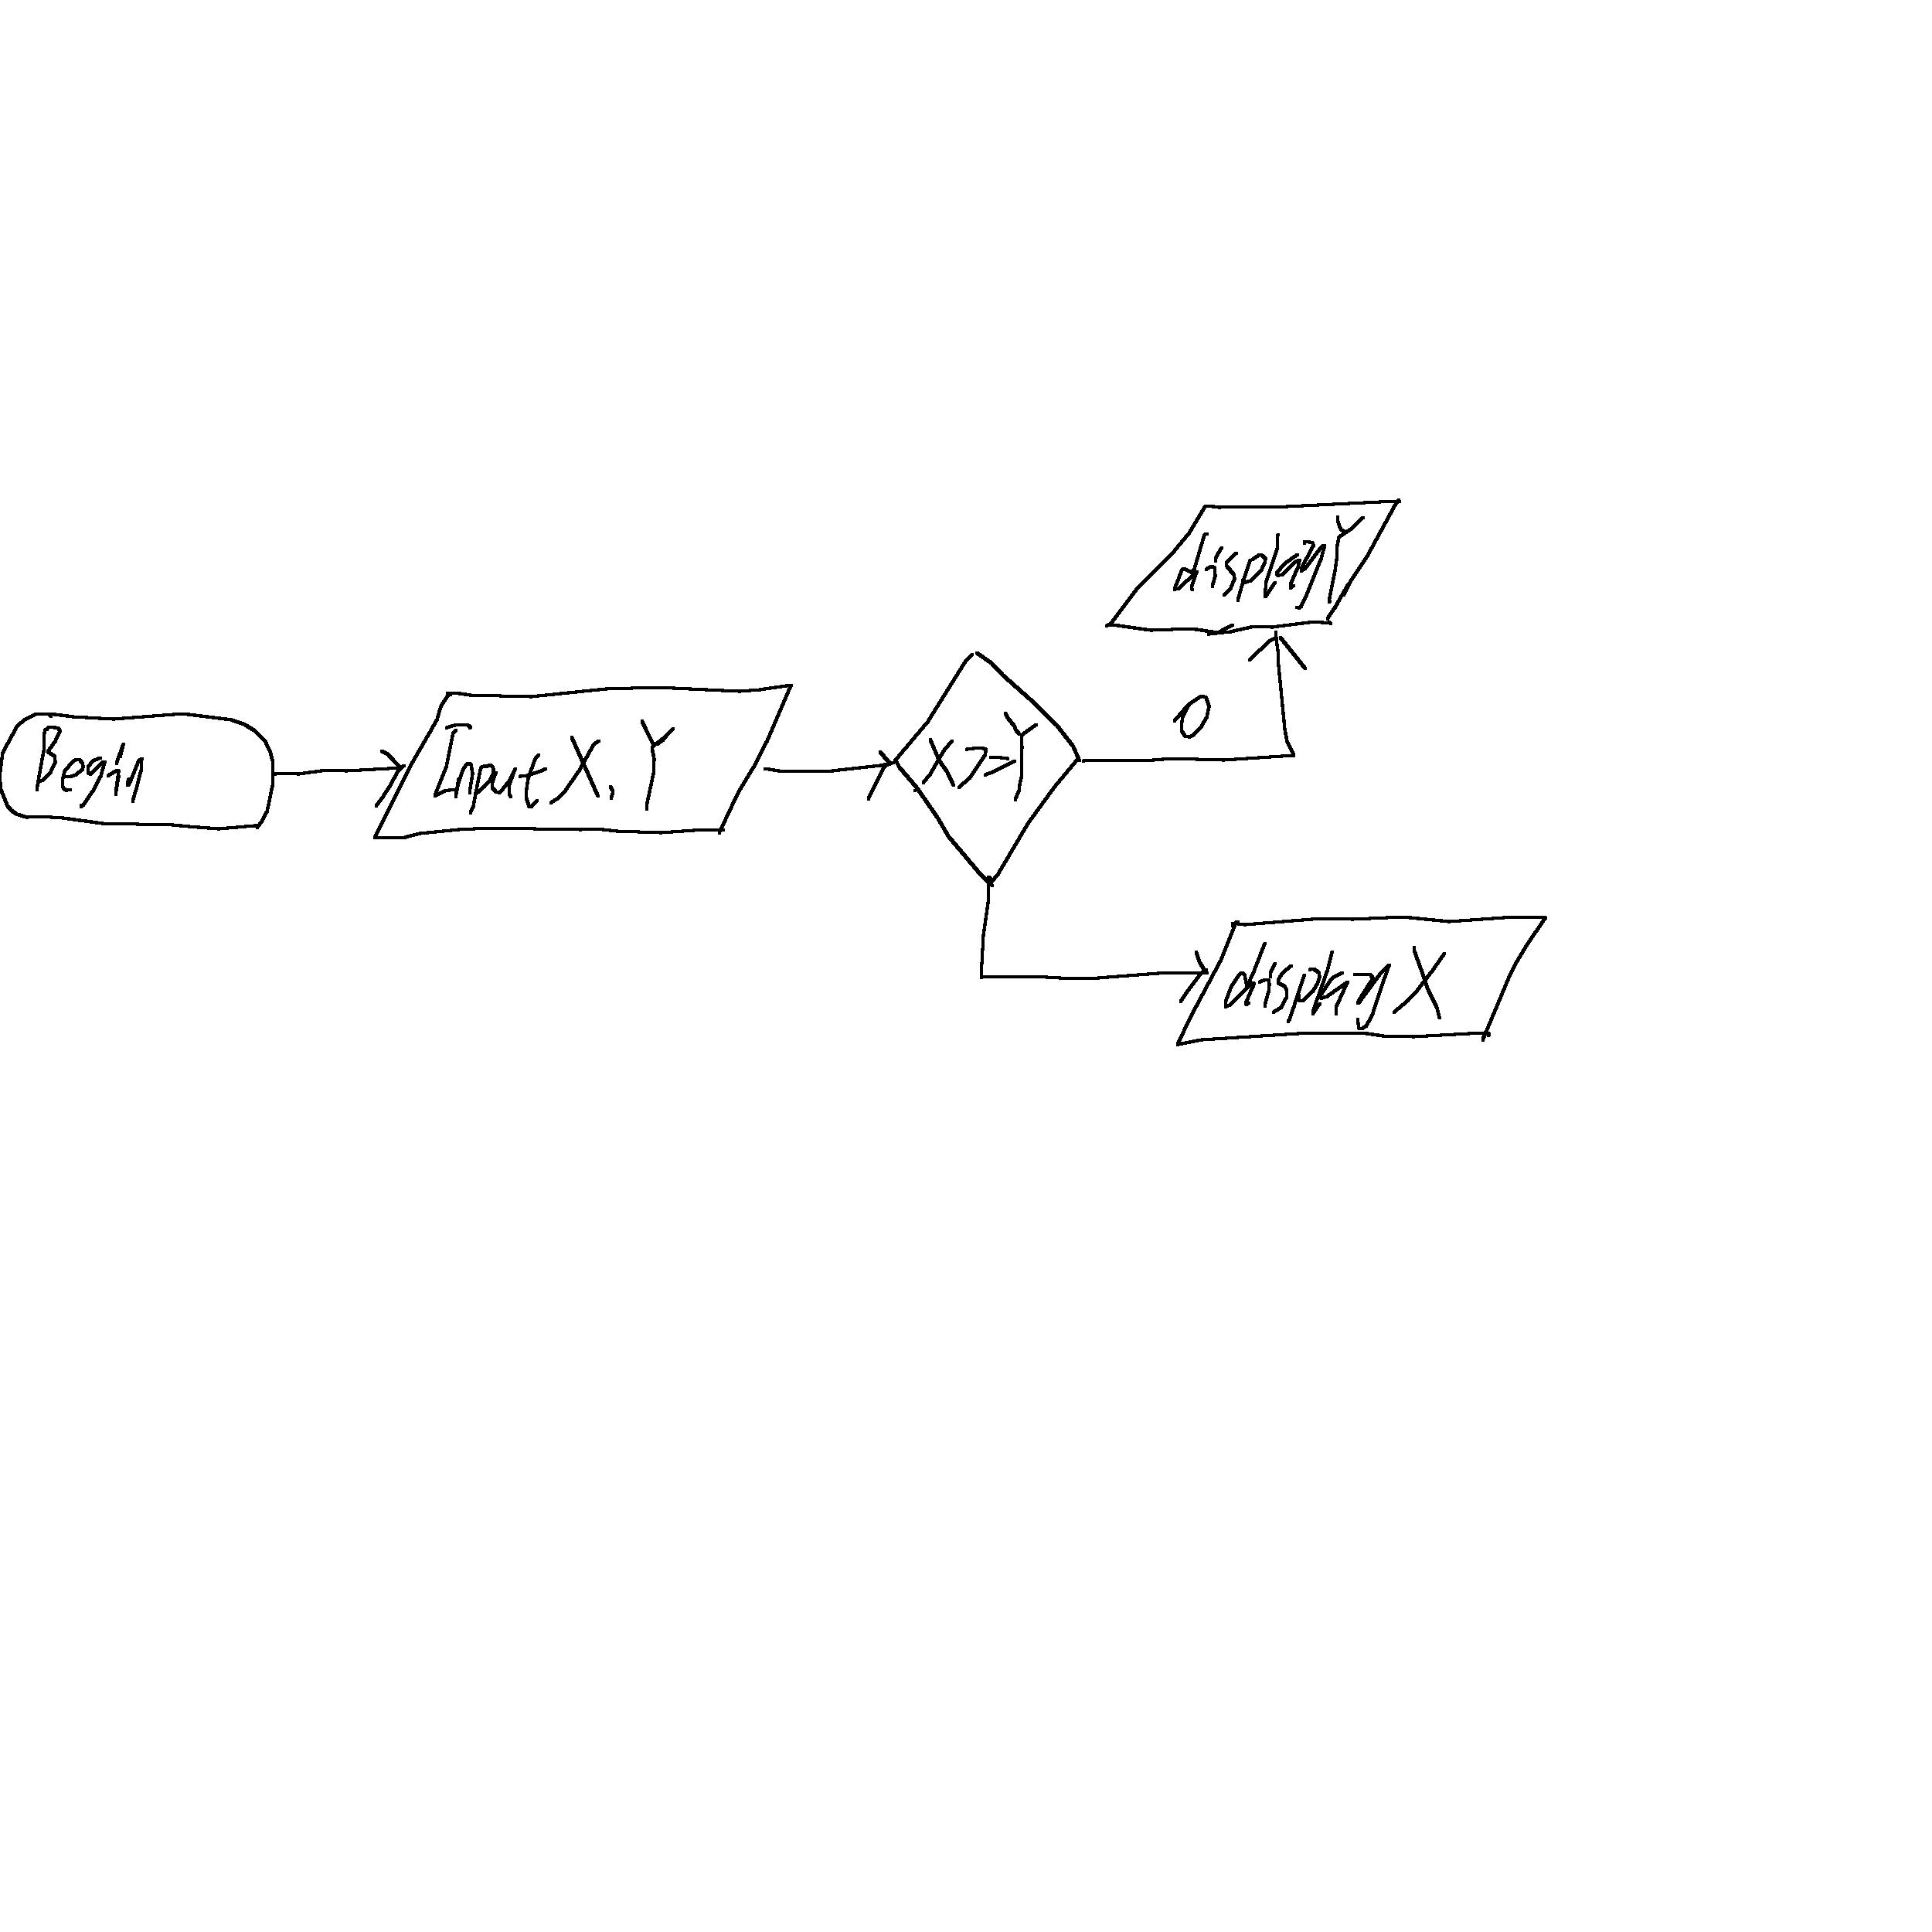 Begin
Input X, Y
X>=Y
0
display Y
display X